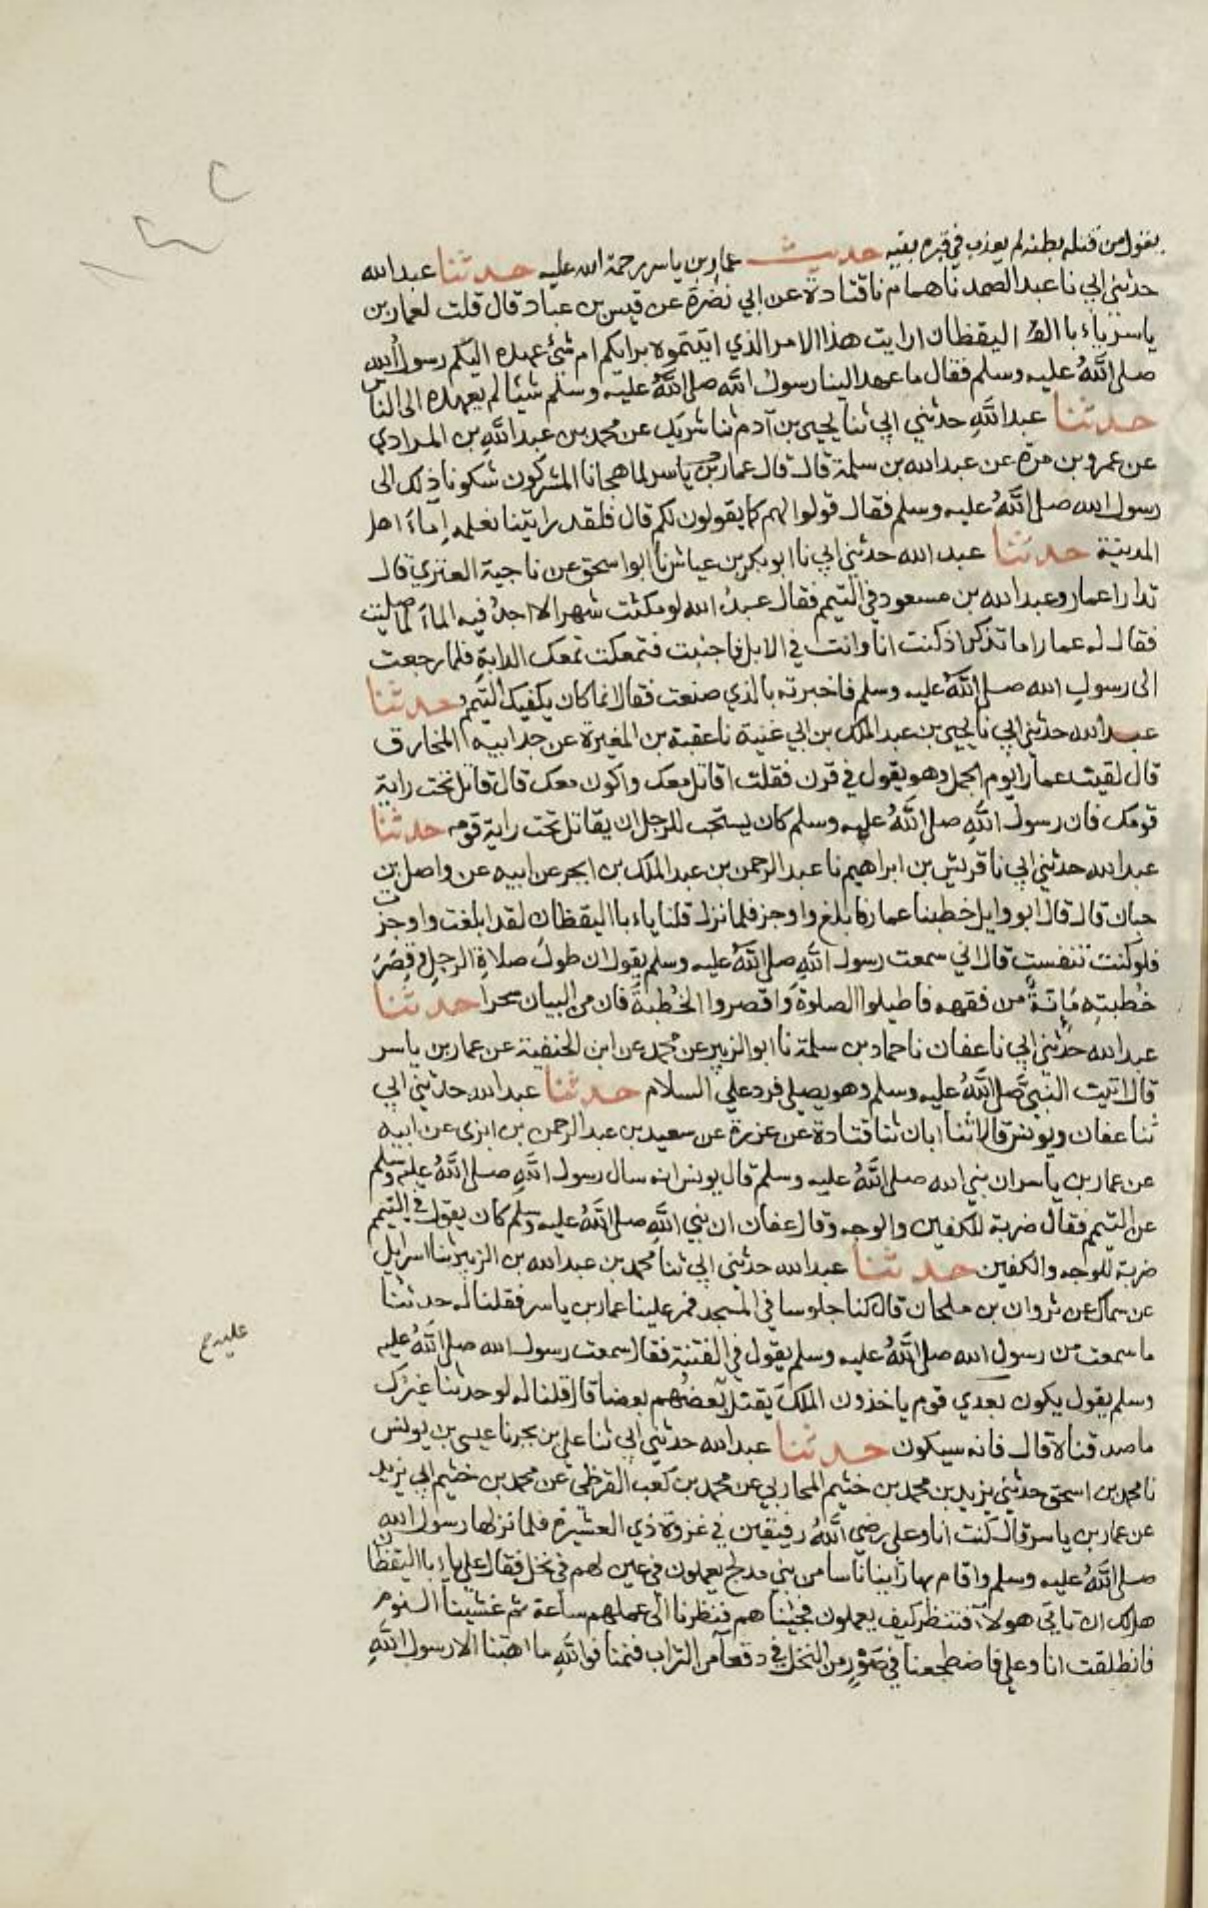 يقول من قتله بطنه لم يعذب في قبره بقيه حديث عمار بن ياسر رحمة الله عليه حدثنا عبد الله
حدثني ابي نا عبد الصمد نا همام نا قتادة عن ابي نضرة عن قيس بن عباد قال قلت لعمار بن
ياسر ياء با اليقظان ارايت هذا الامر الذي اتيتموه برايكم ام شئ عهده اليكم رسول الله
صلى الله عليه وسلم فقال ما عهد الينا رسول الله صلى الله عليه وسلم شيئا لم يعهده الى الناس
حدثنا عبد الله حدثني ابي ثنا يحيى بن آدم ثنا شريك عن محمد بن عبد الله بن المرادي
عن عمرو بن مرة عن عبد الله بن سلمة قال قال عمار بن ياسر لما هجانا المشركون شكونا ذلك الى
رسول الله صلى الله عليه وسلم فقال قولوا لهم كما يقولون لكم قال فلقد رايتنا نعلمه اماء اهل
المدينة حدثنا عبد الله حدثني ابي نا ابو بكر بن عياش نا ابو اسحق عن ناجية العنزي قال
تدارا عمار وعبد الله بن مسعود في التيمم فقال عبد الله لو مكثت شهرا لا اجد فيه الماء لما صليت
فقال له عمار اما تذكر اذ كنت انا وانت في الابل فاجنبت فتمعكت تمعك الدابة فلما رجعت
الى رسول الله صلى الله عليه وسلم فاخبرته بالذي صنعت فقال انما كان يكفيك التيمم حدثنا
عبد الله حدثني ابي نا يحيى بن عبد الملك بن ابي غنية نا عقبة بن المغيرة عن جد ابيه المخارق
قال لقيت عمارا يوم الجمل وهو يقول في قرن فقلت اقاتل معك واكون معك قال قاتل تحت راية
قومك فان رسول الله صلى الله عليه وسلم كان يستحب للرجل ان يقاتل تحت راية قومه حدثنا
عبد الله حدثني ابي نا قريش بن ابراهيم نا عبد الرحمن بن عبد الملك بن ابجر عن ابيه عن واصل بن
حبان قال قال ابو وايل خطبنا عمار فابلغ واوجز فلما نزل قلنا ياء با اليقظان لقد ابلغت واوجزت
فلو كنت تنفست قال اني سمعت رسول الله صلى الله عليه وسلم يقول ان طول صلاة الرجل وقصر
خطبته مئنة من فقهه فاطيلوا الصلوة واقصروا الخطبة فان من البيان سحرا حدثنا
عبد الله حدثني ابي نا عفان نا حماد بن سلمة نا ابو الزبير عن محمد عن ابن الحنفية عن عمار بن ياسر
قال اتيت النبي صلى الله عليه وسلم وهو يصلي فرد علي السلام حدثنا عبد الله حدثني ابي
ثنا عفان ويونس قالا ثنا ابان ثنا قتادة عن عزرة عن سعيد بن عبد الرحمن بن ابزى عن ابيه
عن عمار بن ياسر ان نبي الله صلى الله عليه وسلم قال يونس انه سال رسول الله صلى الله عليه وسلم
عن التيمم فقال ضربة للكفين والوجه وقال عفان ان نبي الله صلى الله عليه وسلم كان يقول في التيمم
ضربة للوجه والكفين حدثنا عبد الله حدثني ابي ثنا محمد بن عبد الله بن الزبير ثنا اسرايل
عن سماك عن ثروان بن ملحان قال كنا جلوسا في المسجد فمر علينا عمار بن ياسر فقلنا له حدثنا
ما سمعت من رسول الله صلى الله عليه وسلم يقول في الفتنة فقال سمعت رسول الله صلى الله عليه
وسلم يقول يكون بعدي قوم ياخذون الملك يقتل بعضهم بعضا قال قلنا له لو حدثنا غيرك
ما صدقناه قال فانه سيكون حدثنا عبد الله حدثني ابي ثنا علي بن بحر نا عيسى بن يونس
نا محمد بن اسحق حدثني يزيد بن محمد بن خثيم المحاربي عن محمد بن كعب القرظي عن محمد بن خثيم ابي يزيد
عن عمار بن ياسر قال كنت انا وعلي رضي الله رفيقين في غزوة ذي العشيرة فلما نزلها رسول الله
صلى الله عليه وسلم واقام بها راينا ناسا من بني مدلج يعملون في عين لهم في نخل فقال علي ياء با اليقظان
هل لك ان تاتي هولاء فتنظر كيف يعملون فجئناهم فنظرنا الى عملهم ساعة ثم غشينا النوم
فانطلقت انا وعلي فاضطجعنا في صور من النخل في دقعآ من التراب فنمنا فوالله ما اهبنا الا رسول الله